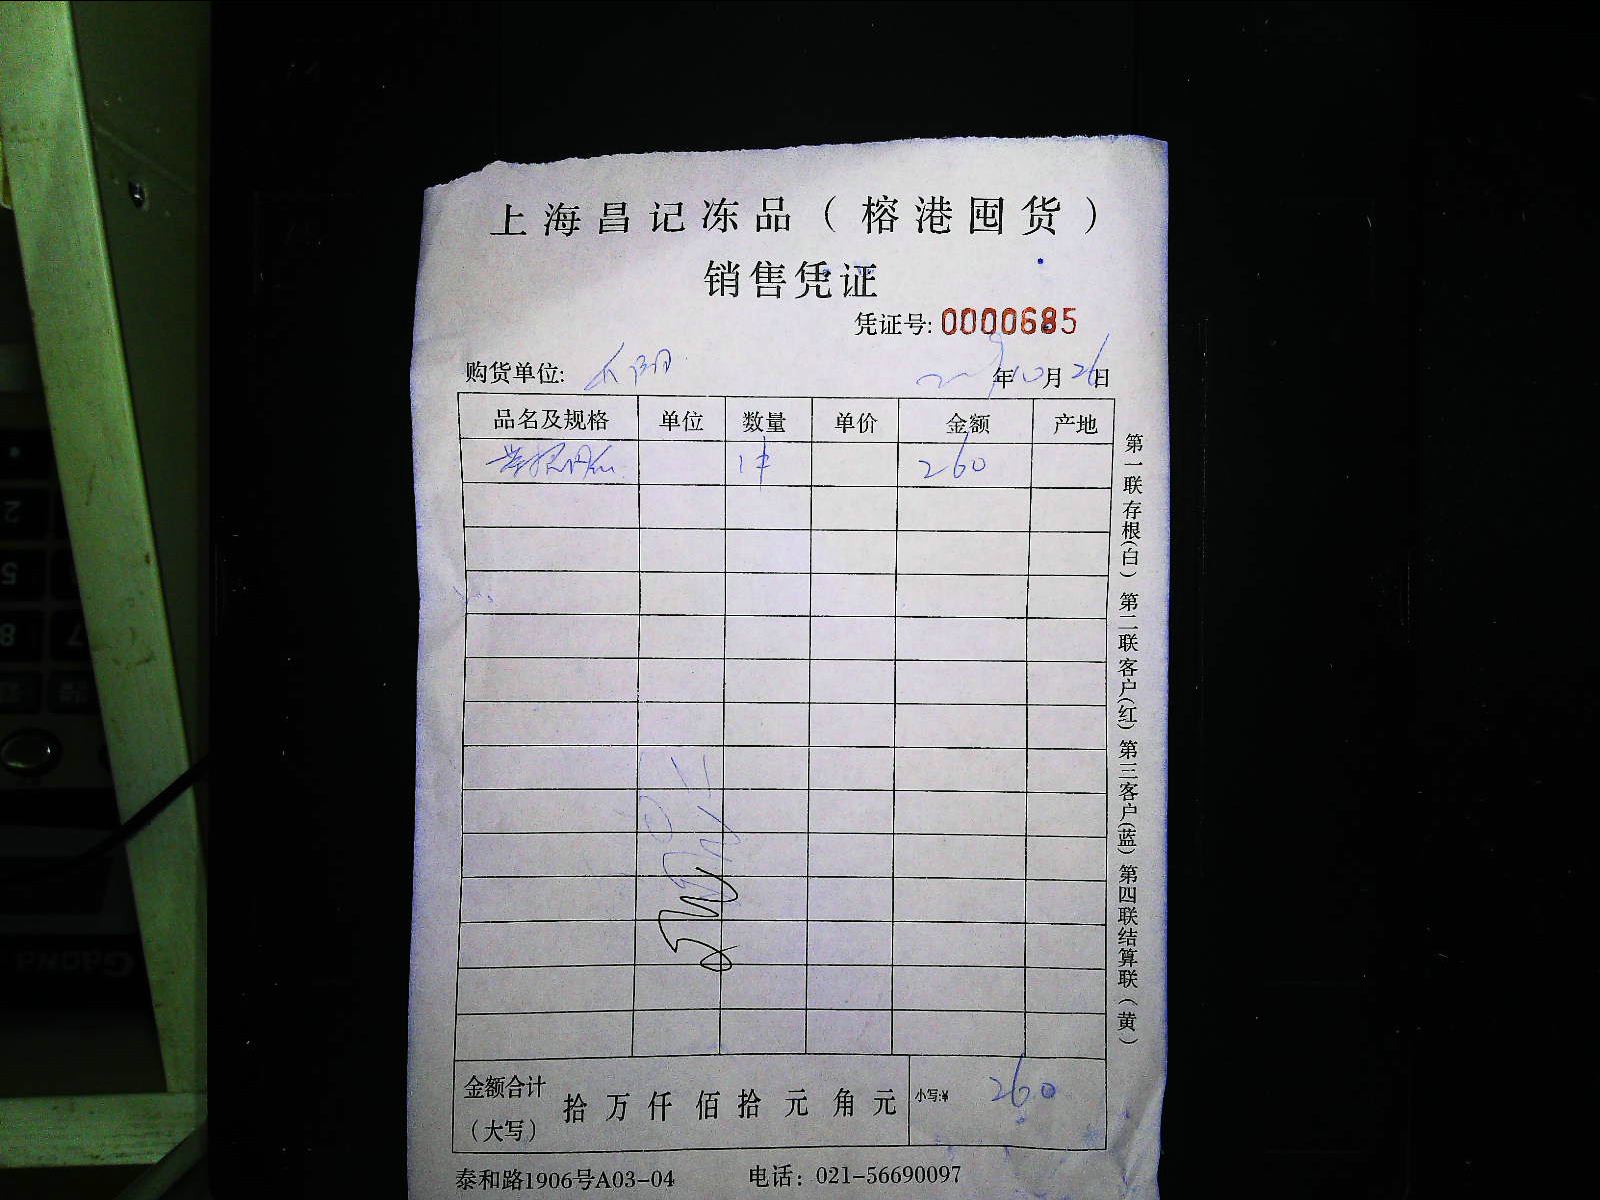 上海昌记冻品（榕港囤货）
销售凭证
凭证号: 0000685
购货单位:
年10月26日
品名及规格 单位 数量 单价 金额 产地
1件 260
第一联存根(白) 第二联客户(红) 第三客户(蓝) 第四联结算联(黄)
金额合计（大写） 拾 万 仟 佰 拾 元 角 元 小写:¥ 260
泰和路1906号A03-04 电话: 021-56690097